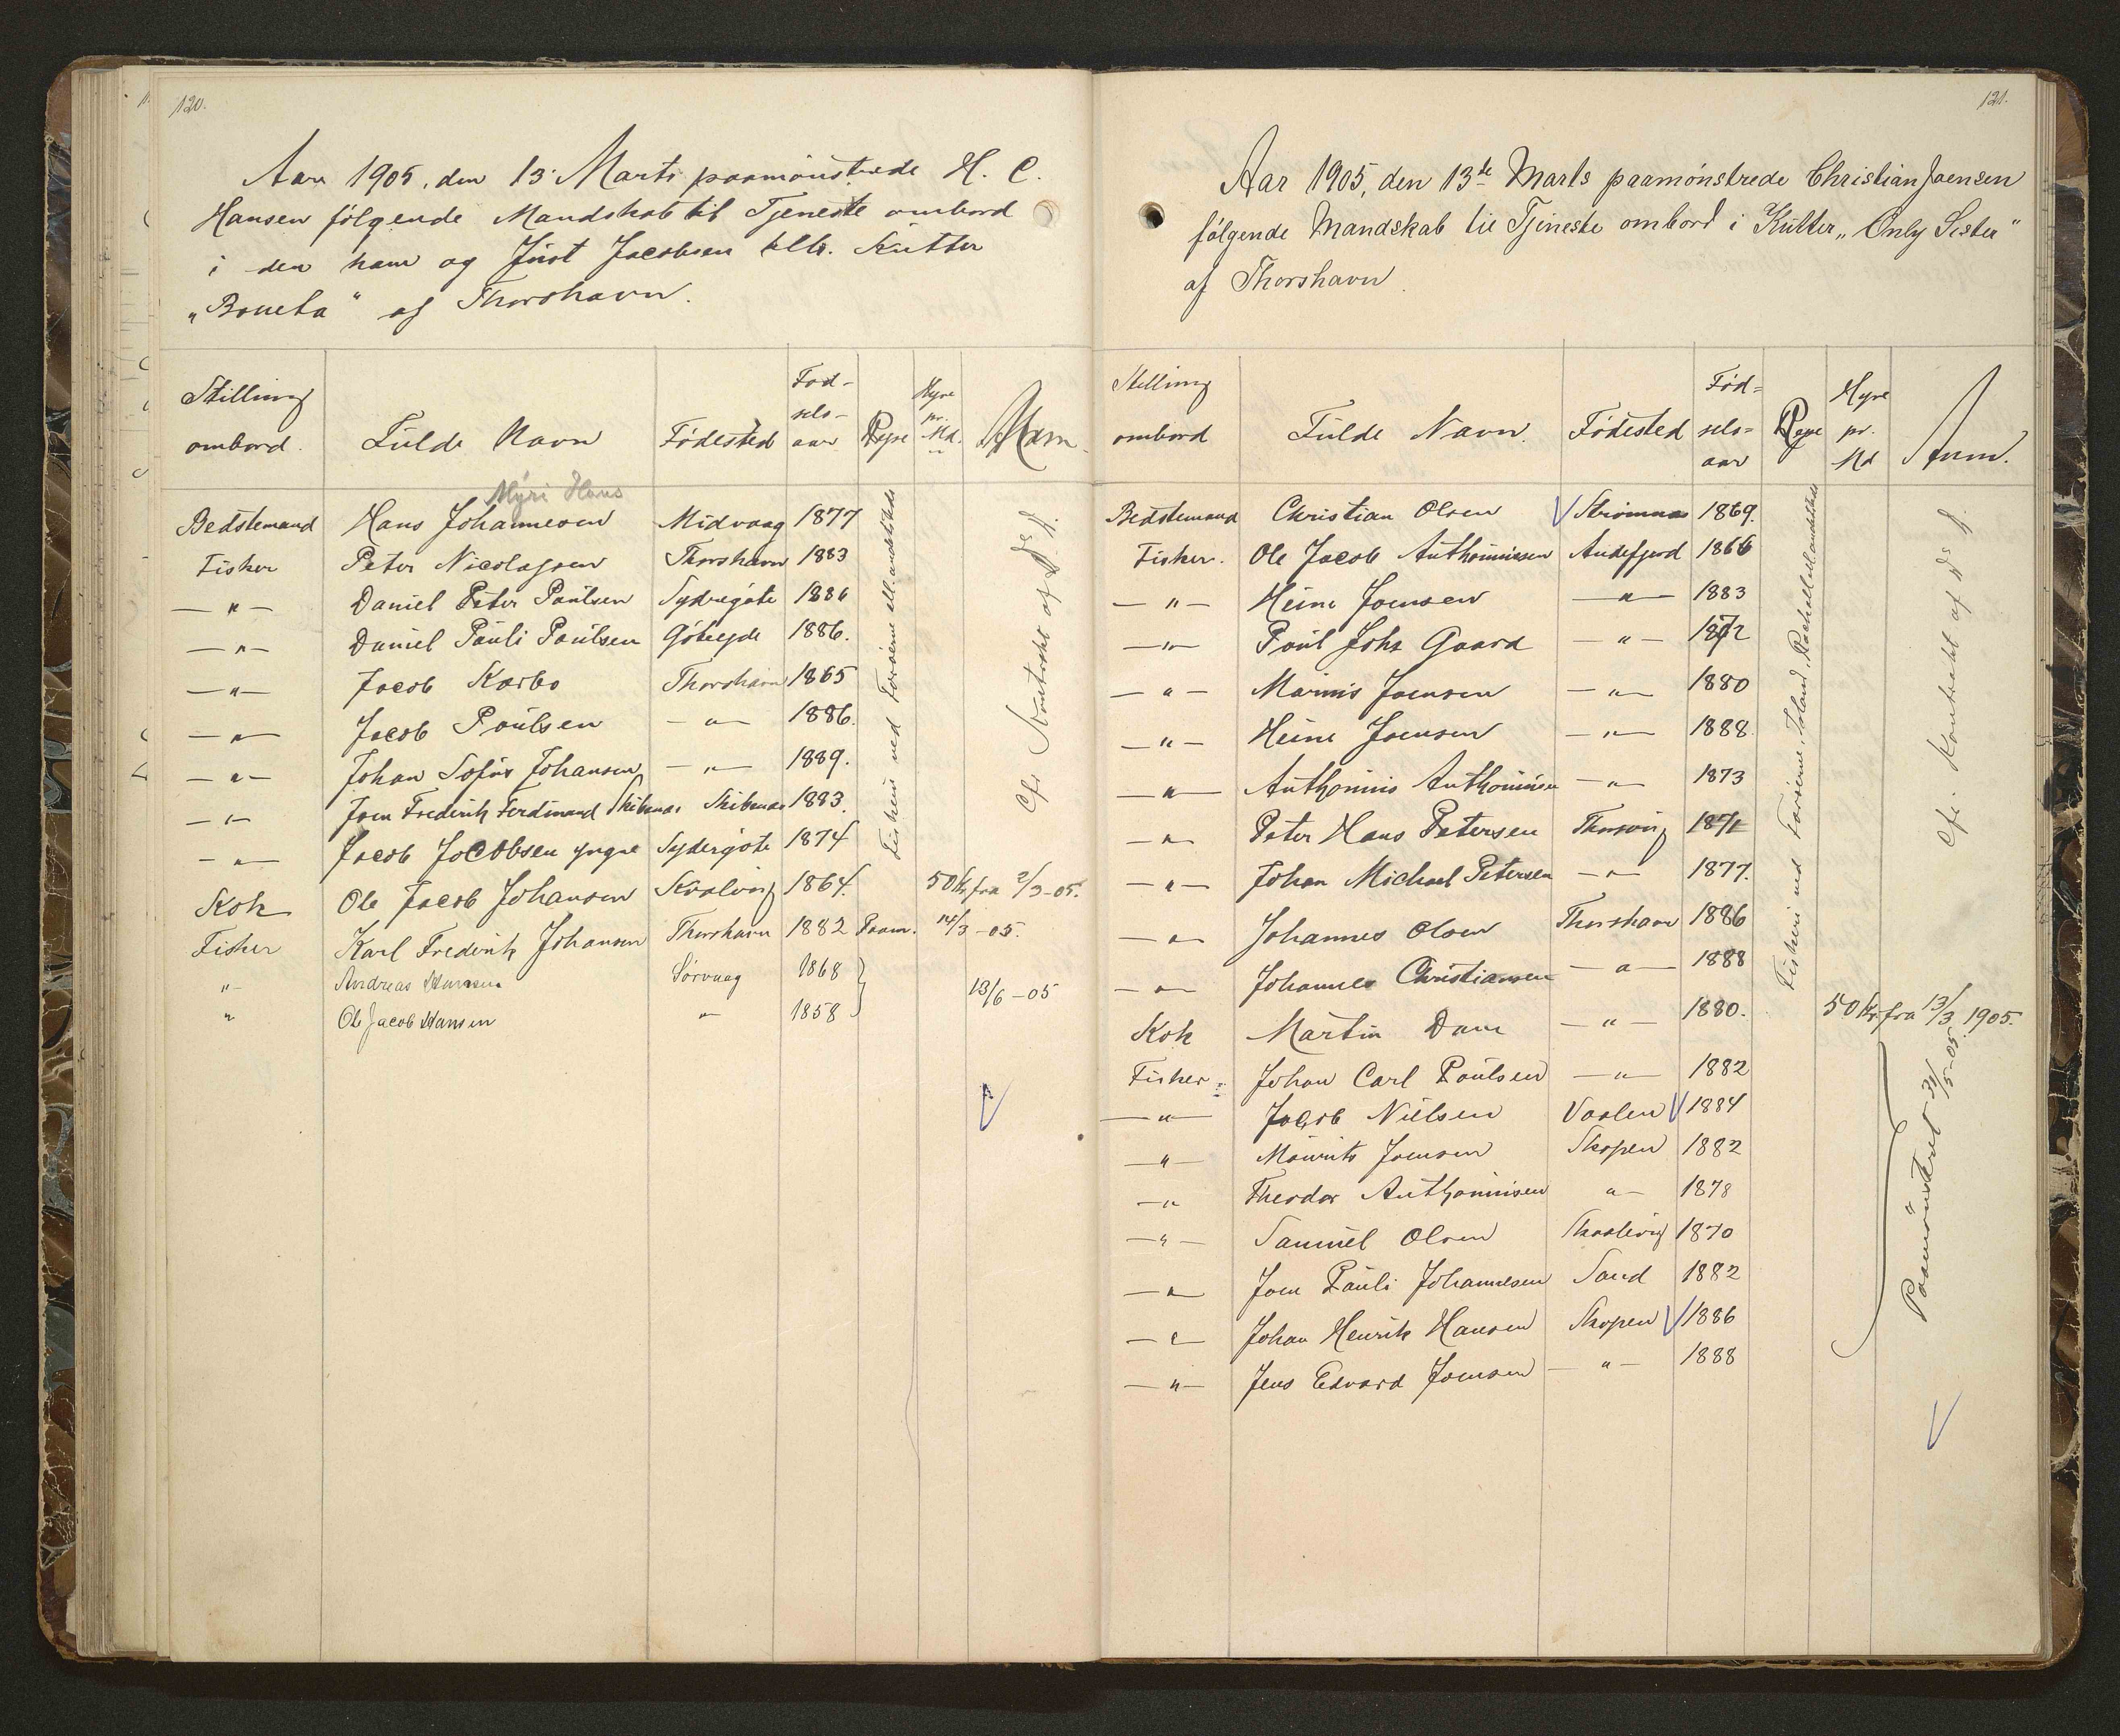 120.
Aar 1905, den 13' Marts paamönstrede H. C.
Hansen fölgende Mandskab til Tjeneste ombord
i den ham og Just Jacobsen tilh. Kutter
„Boneta" af Thorshavn.
Stilling ombord. Fulde Navn Födested Föd-sels-aar Rejse Hyre pr. Md. Anm.
Myri Hans
Bedstemand Hans Johannesen Midvaag 1877
Fisker Peter Nicolajsen Thorshavn 1883
—"— Daniel Peter Poulsen Sydregöte 1886
—"— Daniel Pauli Poulsen Götegjde 1886.
—"— Jacob Karbo Thorshavn 1865
—"— Jacob Poulsen —"— 1886.
—"— Johan Sofus Johansen —"— 1889.
—"— Joen Frederik Ferdinand Skibenæs Skibenæs 1883.
—"— Jacob Jacobsen yngre Sydergöte 1874
Kok Ole Jacob Johansen Kvalvig 1864. 50 Kr fra 2/3-05.
Fisker Karl Frederik Johansen Thorshavn 1882 Paam. 14/3-05.
"— Andreas Hansen Sörvaag 1868
" Ole Jacob Hansen "— 1858 13/6-05
Fiskeri ved Færöerne ell. andetsteds
Cfr Kontrakt af Ds D.
121.
Aar 1905, den 13de Marts paamönstrede Christian Joensen
fölgende Mandskab til Tjeneste ombord i Kutter „Only Sister"
af Thorshavn.
Stilling ombord Fulde Navn. Födested Föd-sels-aar Rejse Hyre pr. Md Anm.
Bedstemand Christian Olsen Strömnæs 1869.
Fisker. Ole Jacob Anthoniussen Andefjord 1866
—"— Heine Joensen —"— 1883
—"— Poul Johs Gaard —"— 1872
—"— Marius Joensen —"— 1880
—"— Heine Joensen —"— 1888.
—"— Anthonius Anthoniusen —"— 1873
—"— Peter Hans Petersen Thorsvig 1871
—"— Johan Michael Petersen —"— 1877.
—"— Johannes Olsen Thorshavn 1886
—"— Johannes Christiansen —"— 1888
Kok Martin Dam —"— 1880. 50 Kr. fra 13/3 1905.
Fisker. Johan Carl Poulsen —"— 1882
—"— Jacob Nielsen Vaalen 1884
—"— Mourits Joensen Skopen 1882
—"— Theodor Anthoniusen "— 1878
—"— Samuel Olsen Skaalevig 1870
—"— Joen Pauli Johannesen Sand 1882
—"— Johan Henrik Hansen Skopen 1886
—"— Jens Edvard Joensen —"— 1888
Fiskeri ved Færöerne, Island, Rockall ell. andetsteds
Cfr. Kontrakt af Ds D.
Paamönstret 31/5-05.